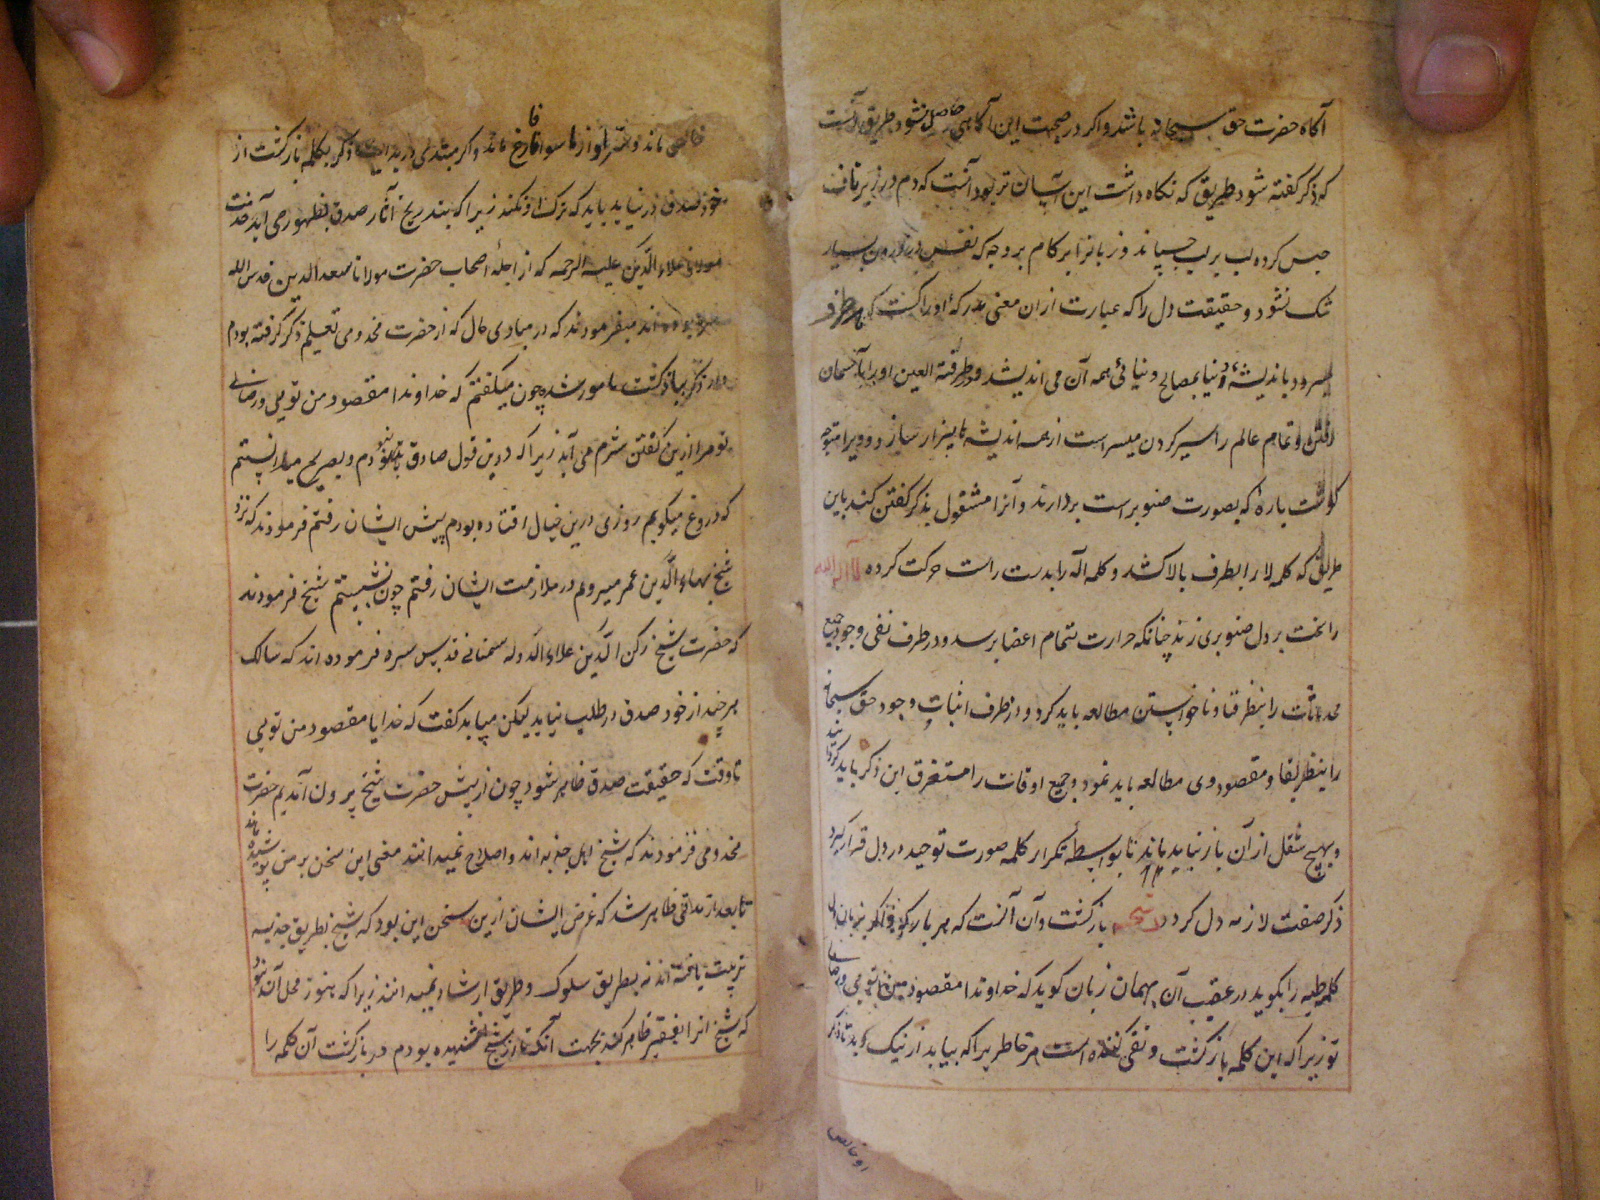 آگاه حضرت حق سبحانه باشد و اکر در صحبت این آکاهی حاصل نشود طریق آنست
که ذکر کفته شود و طریق که نکاه داشت این آسان تر بود آنست که دم در زیر ناف
حبس کرده لب بر لب چسپاند و زبانرا بر کام بر وجه که نفس در درون بسیار
تنک نشود و حقیقت دل را که عبارت ازان معنی مدرکهٔ اوراکست که بهر طرف
میرود باندیشهٔ دنیا بمصالح دنیائی همه آن می اندیشد و در طرفة العین او را بآسمان
رفتن و تمام عالم را سیر کردن میسر است از همه اندیشه ها بیزار سازد و ویرا متوجه
کوشت پاره که بصورت صنوبر است بردارند و آنرا مشغول بذکر کفتن کند باین
طریق که کلمه لا را بطرف بالا کشد و کلمه اله را بدست راست حرکت کرده الا الله
را سخت بر دل صنوبری زند چنانکه حرارت بتمام اعضا برسد و در طرف نفی وجود جمیع
محدثات را بنظر فنا و ناخواستن مطالعه باید کرد و در طرف اثبات وجود حق سبحانه
را بنظر بقا و مقصودی مطالعه باید نمود و جمیع اوقات را مستغرق این ذکر باید کردانید
و بهیچ شغل از آن باز نباید ماند تا بواسطهٔ تکرار کلمه صورت توحید در دل قرار کیرد
ذکر صفت لازمه دل کردد بازکشت و آن آنست که هر بار که ذاکر بزبان دل
کلمه طیبه را بکوید در عقب آن بهمان زبان کوید که خداوندا مقصود من توئی و رضای
تو زیرا که این کلمه بازکشت و نفی کننده است مر خاطریرا که بیاید از نیک و بد تا ذکر
او خالص
خالص ماند و سر او از ما سوا فارغ ماند و اکر مبتدی در بدایت ذکر بکلمه بازکشت از
خود صدق در نیابد باید که ترک او نکند زیرا که بتدریج آثار صدق بظهور می آید خدمت
مولانا علاء الدین علیه الرحمه که از اجلهٔ اصحاب حضرت مولانا سعد الدین قدس الله
سره بوده اند میفرمودند که در مبادی حال که از حضرت مخدومی تعلیم ذکر کرفته بودم
و در ذکر ببازکشت مامور شده چون میکفتم که خداوندا مقصود من توئی و رضای
تو مرا ازین کفتن شرم می آید زیرا که درین قول صادق نبودم و بصریح میدانستم
که دروغ میکویم روزی درین خیال افتاده بودم پیش ایشان رفتم فرمودند که نزد
شیخ بهاء الدین عمر میرویم در ملازمت ایشان رفتم چون نشستیم شیخ فرمودند
که حضرت شیخ رکن الدین علاء الدوله سمنانی قدس سره فرموده اند که سالک
هر چند از خود صدق در طلب نیابد لیکن میباید کفت که خدایا مقصود من توئی
تا وقت که حقیقت صدق ظاهر شود چون از پیش حضرت شیخ بیرون آمدیم حضرت
مخدومی فرمودند که شیخ اهل جذبه اند و اصلاح نمیدانند معنی این سخن بر من پوشیده ماند
تا بعد از مدتی ظاهر شد که غرض ایشان ازین سخن این بود که شیخ بطریق جذبه
تربیت یافته اند نه بطریق سلوک و طریق ارشاد نمیدانند زیرا که هنوز محل آن نبود
که شیخ انرا بفقیر ظاهر کند بجهت آنکه تا از شیخ نشنیده بودم در بازکشت آن کلمه را